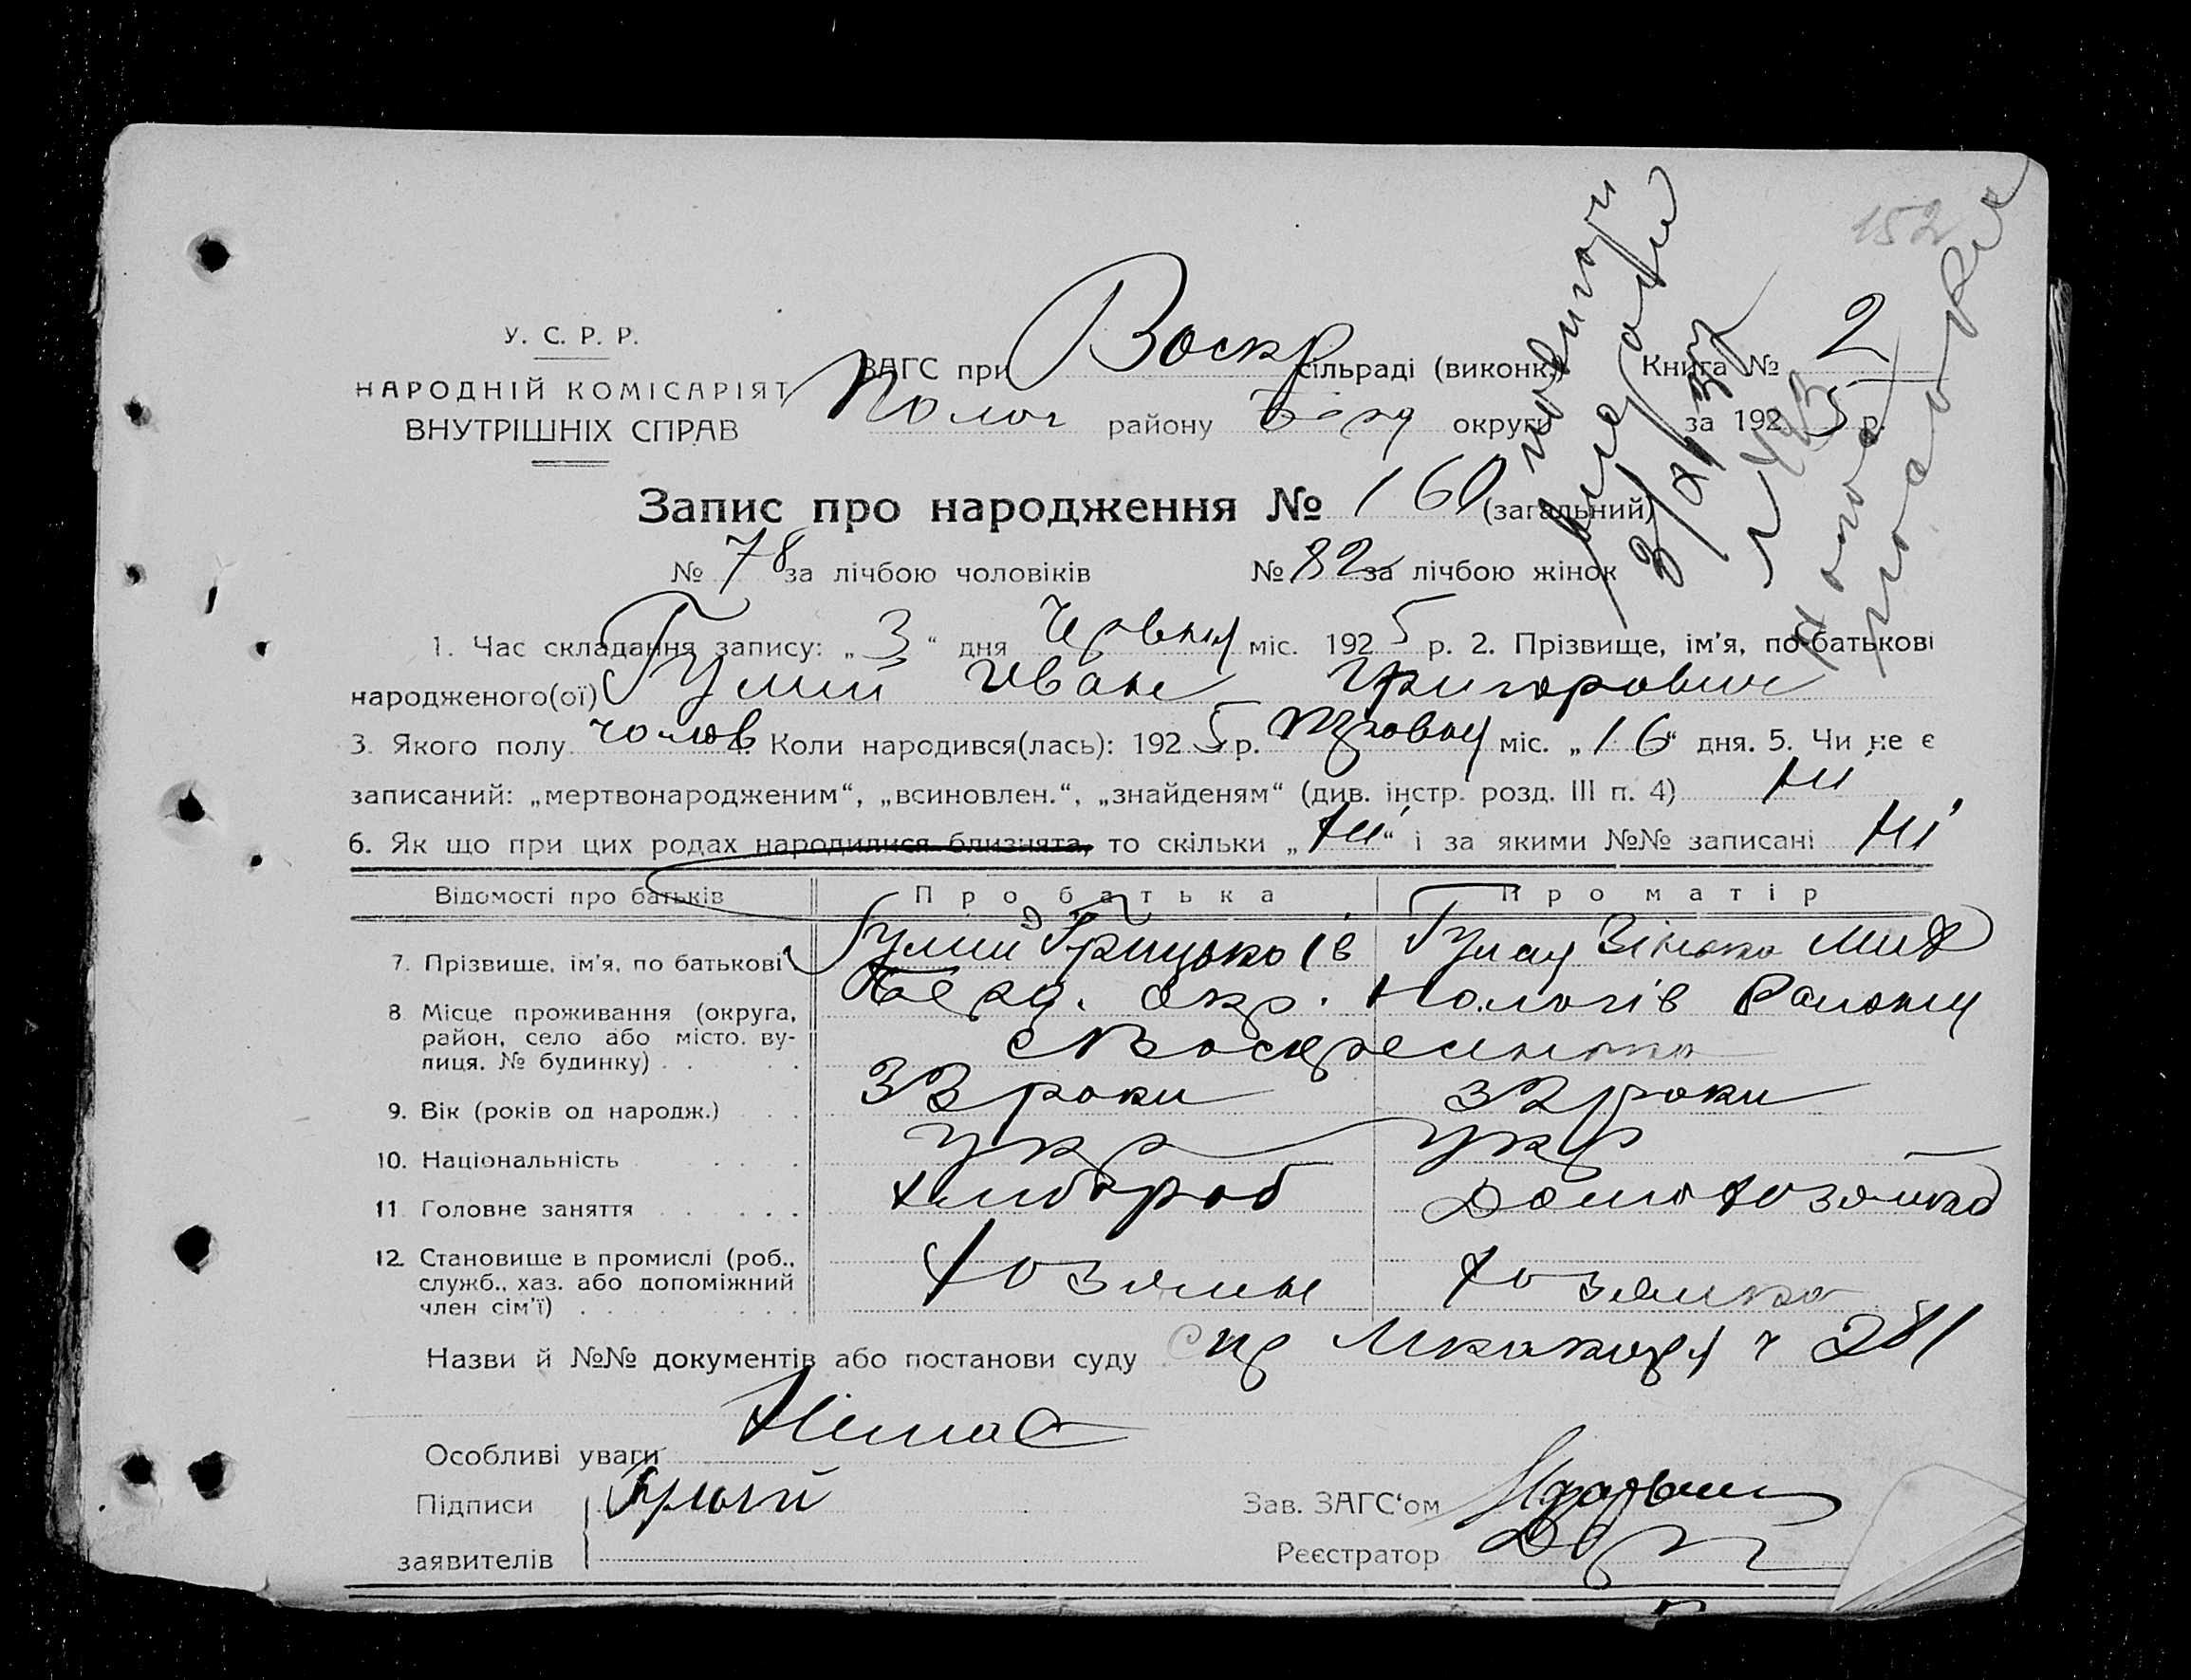 152
У. С. Р. Р.
НАРОДНІЙ КОМІСАРІЯТ
ВНУТРІШНІХ СПРАВ
ЗАГС при Воскр сільраді (виконк.) Книга № 2
Полог району Берд округи за 1925 р.
Запис про народження № 160 (загальний)
№ 78 за лічбою чоловіків № 82 за лічбою жінок
1. Час складання запису: „3“ дня Червня міс. 1925 р. 2. Прізвище, ім'я, по-батькові
народженого(ої) Гулий Иван Григорович
3. Якого полу чолов 4. Коли народився(лась): 1925 р. міс. „16“ дня. 5. Чи не є
записаний: „мертвонародженим“, „всиновлен.“, „знайденям“ (див. інстр. розд. III п. 4) Ні
6. Як що при цих родах народилися близнята, то скільки „Ні“ і за якими №№ записані Ні
Відомості про батьків Про батька Про матір
7. Прізвище, ім'я, по батькові Гулий Грицько Ів Гулая Зінька Мих
8 Місце проживання (округа, район, село або місто, вулиця, № будинку) Берд. Окр. Пологів Району
с Воскресенка
9. Вік (років од народж.) 32 роки 32 роки
10. Національність укр укр
11 Головне заняття хлибороб Домохозяйкой
12. Становище в промислі (роб., служб., хаз. або допоміжний член сім'ї) Хозяин Хозяйка
Назви й №№ документів або постанови суду 281
Особливі уваги Немає
Підписи Гулий Зав. ЗАГС'ом
заявителів Реєстратор